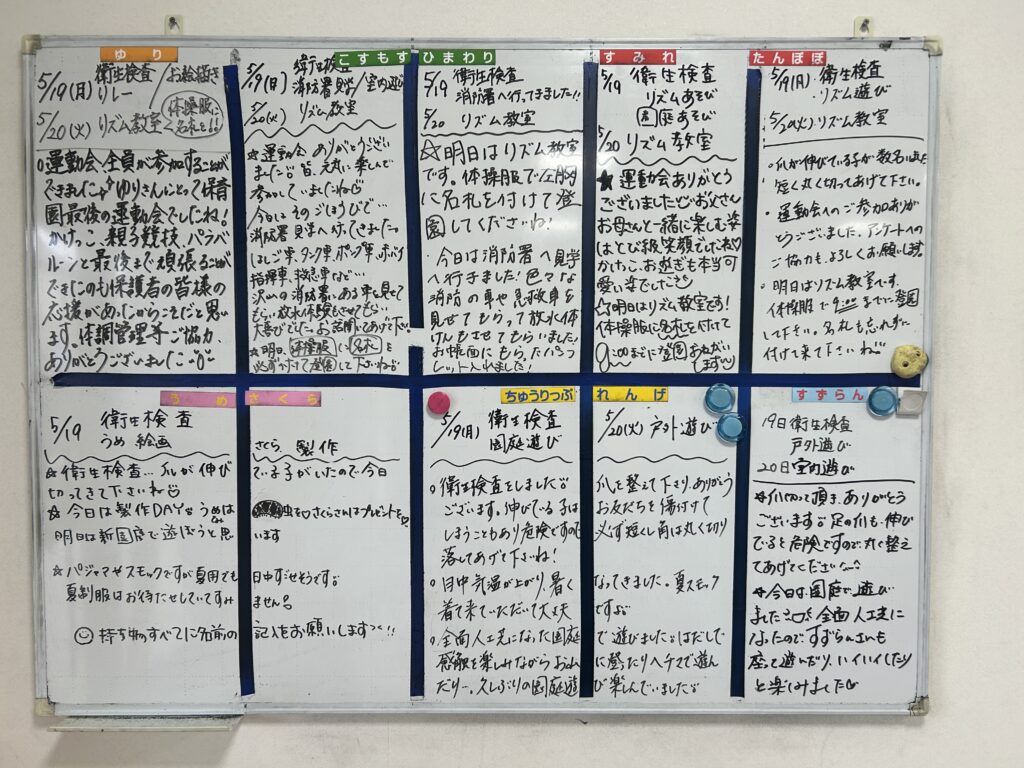 ゆり
5/19(月) 衛生検査 リレー / お絵描き
5/20(火) リズム教室 体操服に名札を!!
○運動会、全員が参加することが
できました♪ゆりさんにとって保育
園最後の運動会でしたね!
かけっこ、親子競技、パラバ
ルーンと最後まで頑張ることが
できたのも保護者の皆様の
応援があったからこそだと思い
ます。体調管理等ご協力、
ありがとうございました
こすもす
5/19(月) 衛生検査
消防署見学/室内遊び
5/20(火) リズム教室
☆運動会 ありがとうござい
ました 皆、元気に楽しんで
参加していましたね
今日は そのごほうびで…
消防署見学へ行ってきました
はしご車、タンク車、ポンプ車
指揮車、救急車など…
沢山の消防署にある車を見せて
もらい放水体験もさせてもらい
大喜びでした。お話聞いてあげて下さい
☆明日、体操服に名札を
必ずつけて登園して下さいね
ひまわり
5/19 衛生検査
消防署へ行ってきました!!
5/20 リズム教室
☆明日はリズム教室
です。体操服で左胸
に名札を付けて登
園してくださいね!
・今日は消防署へ見学
へ行きました!色々な
消防の車や救急車を
見せてもらって放水体
けんもさせてもらいました
お帳面にもらったパンフ
レット入れました!
すみれ
5/19 衛生検査
リズムあそび
園庭あそび
5/20 リズム教室
★運動会ありがとう
ございました お父さん
お母さんと一緒に楽しむ姿
はとび級笑顔でした
かけっこ、お遊ぎも本当可
愛い姿でした
☆明日はリズム教室です!
体操服に名札を付けて
9:00までに登園お願い
します
たんぽぽ
5/19(月) 衛生検査
・リズム遊び
5/20(火) リズム教室
・爪が伸びている子が数名いました
短く丸く切ってあげて下さい。
・運動会へのご参加ありが
とうございました。アンケートへの
ご協力も、よろしくお願いします。
・明日はリズム教室です。
体操服で9:00までに登園
して下さい。名札も忘れずに
付けて来て下さいね
うめ さくら
5/19 衛生検査
うめ 絵画 さくら 製作
☆衛生検査…爪が伸びている子がいたので今日
切ってきて下さいね
☆今日は製作DAY うめは虫を さくらさんはプレゼントを
明日は新園庭で遊ぼうと思います
☆パジャマやスモックですが夏用でも日中すごせそうです
夏制服はお待たせしていてすみません
持ち物すべてに名前の記入をお願いします!!
ちゅうりっぷ れんげ
5/19(月) 衛生検査
園庭遊び
5/20(火) 戸外遊び
○衛生検査をしました 爪を整えて下さり、ありがとう
ございます。伸びている子は お友だちを傷付けて
しまうこともあり危険ですので 必ず短く角は丸く切り
落してあげて下さいね!
○日中気温が上がり、暑くなってきました。夏スモック
着て来ていただいて大丈夫ですよ
○全面人工芝になった園庭で遊びました はだしで
感触を楽しみながらお山に登ったりヘチマで遊ん
だり…久しぶりの園庭遊び楽しんでいました
すずらん
19日 衛生検査
戸外遊び
20日 室内遊び
☆爪切って頂き、ありがとう
ございます 足の爪も、伸び
ていると危険ですので、丸く整え
てあげてください
☆今日は、園庭で遊び
ました 全面人工芝に
なったのですずらんさんも
座って遊んだり、ハイハイしたり
と楽しみました